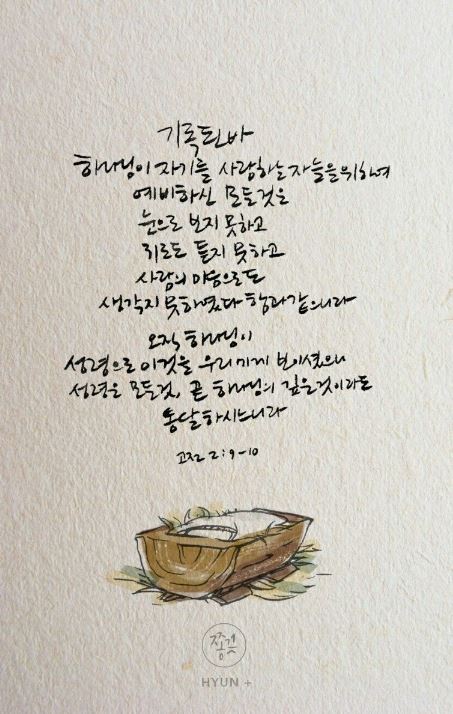 기록된바
하나님이 자기를 사랑하는자들을위하여
예비하신 모든것은
눈으로 보지 못하고
귀로도 듣지 못하고
사람의 마음으로도
생각지 못하였다 함과같으니라
오직 하나님이
성령으로 이것을 우리에게 보이셨으니
성령은 모든것, 곧 하나님의 깊은것이라도
통달하시느니라
고전 2:9-10
HYUN +